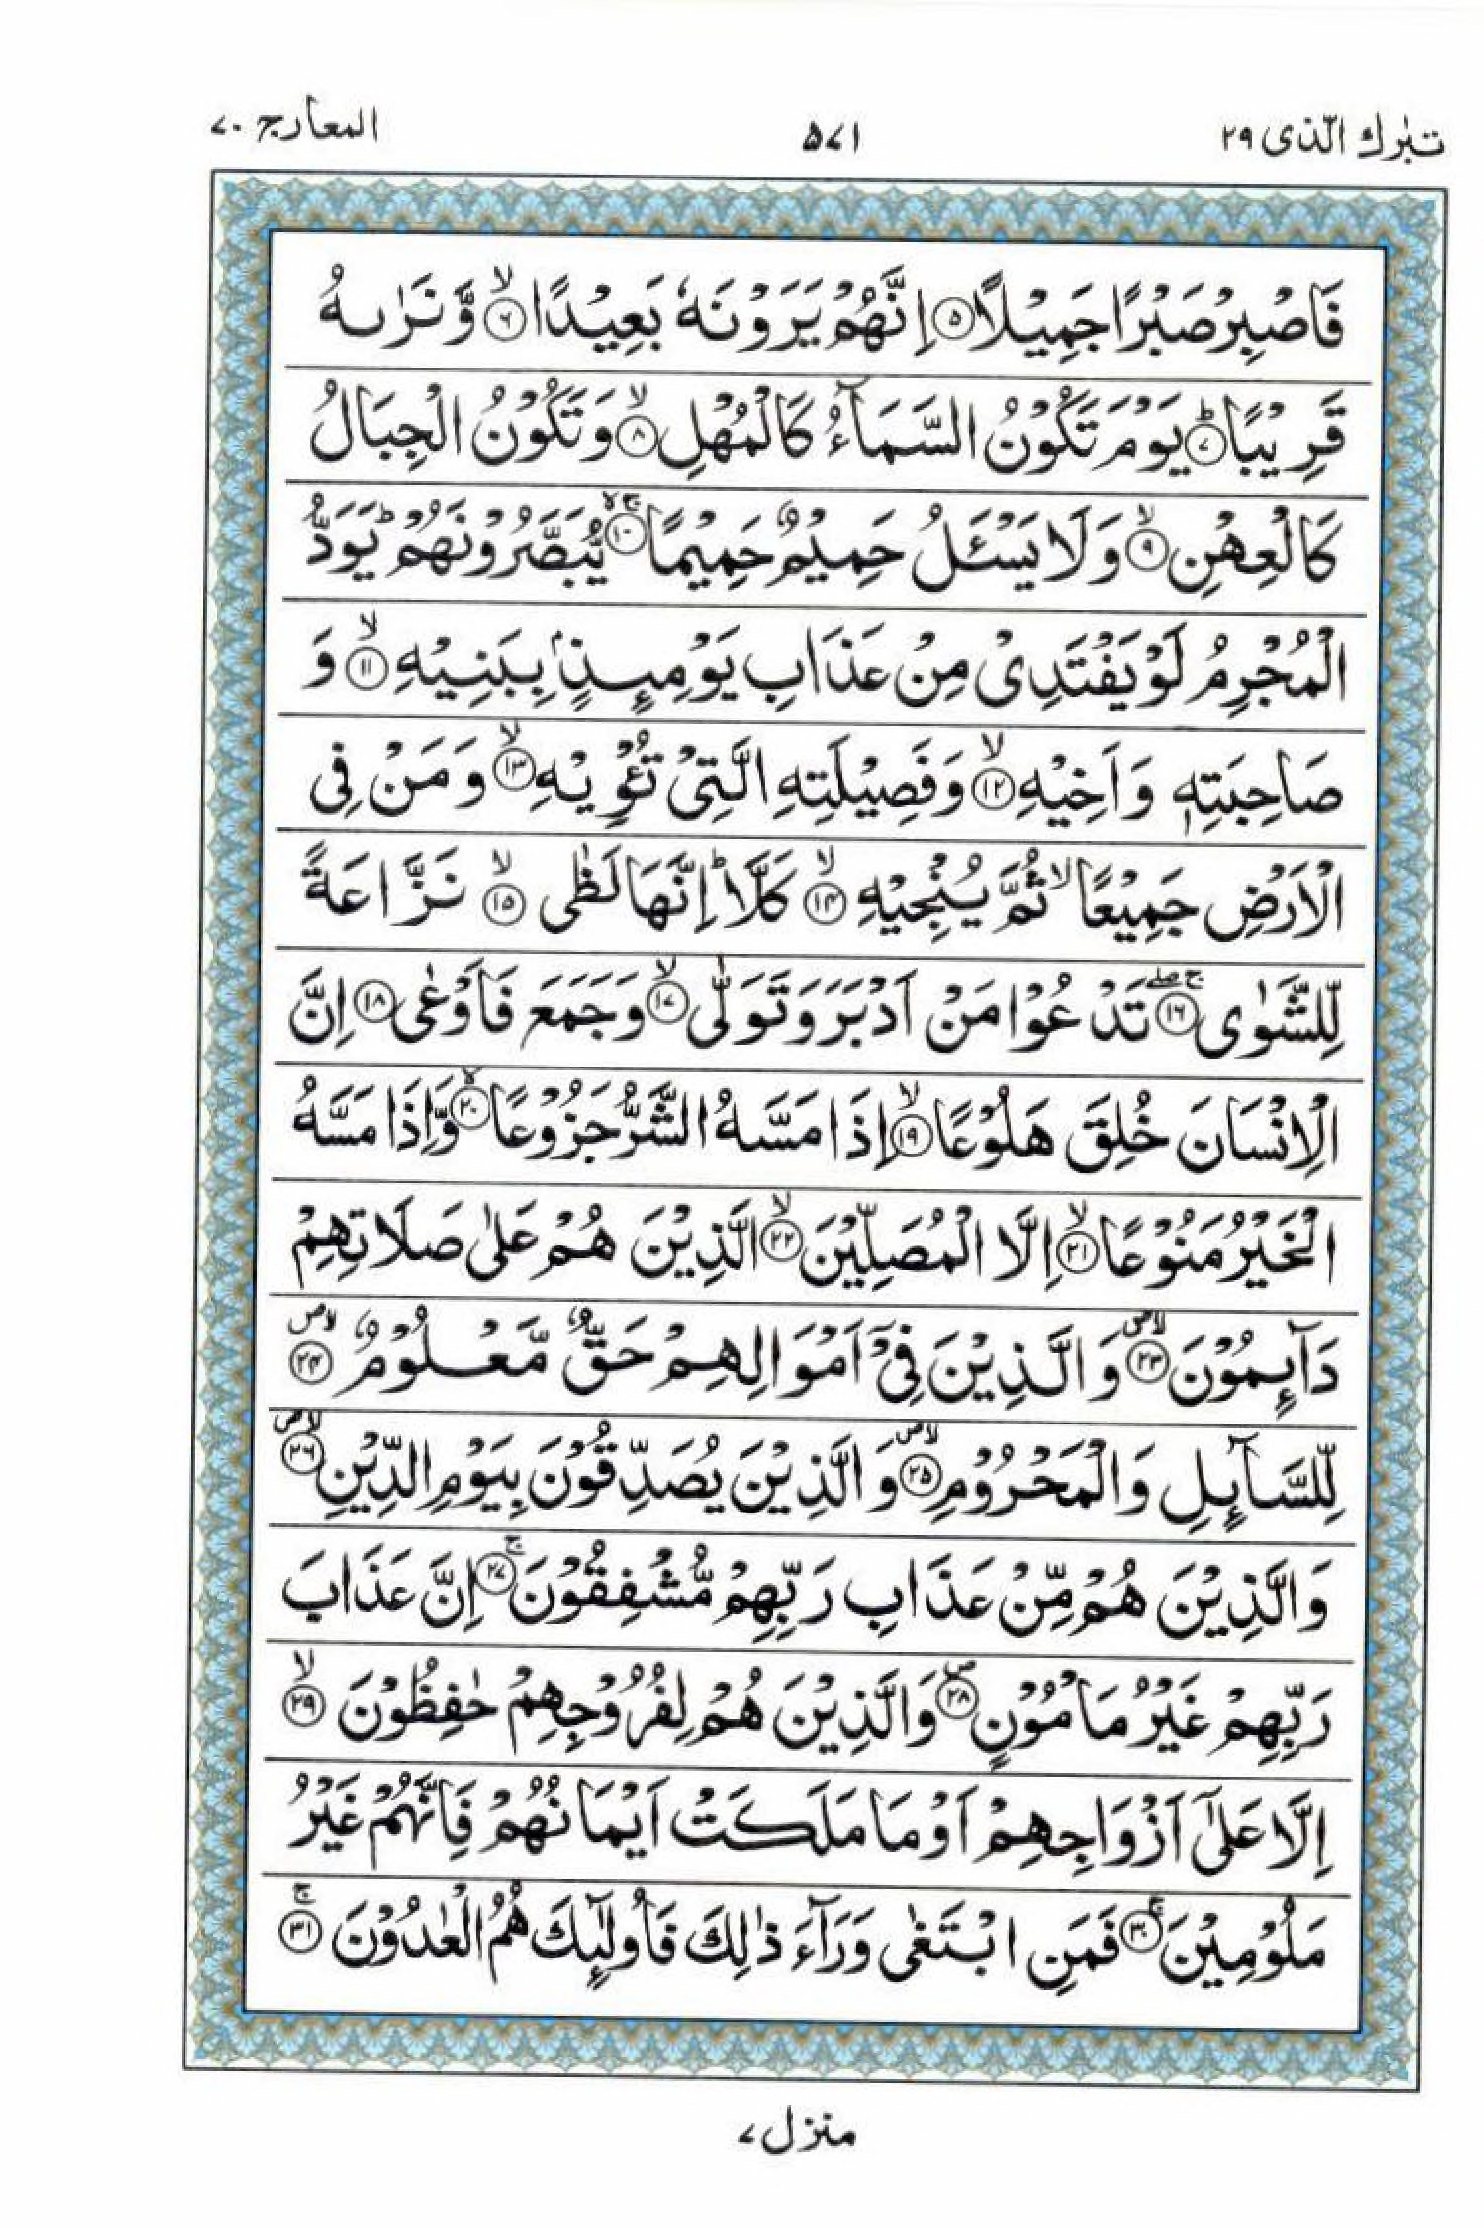 تبٰرك الّذی ۲۹
۵۷۱
المعارج ۷۰
فَاصْبِرْ صَبْرًا جَمِيْلًا ۝۵ اِنَّهُمْ يَرَوْنَهٗ بَعِيْدًا ۙ۝۶ وَّنَرٰىهُ
قَرِيْبًا ؕ۝۷ يَوْمَ تَكُوْنُ السَّمَآءُ كَالْمُهْلِ ۙ۝۸ وَتَكُوْنُ الْجِبَالُ
كَالْعِهْنِ ۙ۝۹ وَلَا يَسْـَٔلُ حَمِيْمٌ حَمِيْمًا ۚۖ۝۱۰ يُّبَصَّرُوْنَهُمْ ؕ يَوَدُّ
الْمُجْرِمُ لَوْ يَفْتَدِىْ مِنْ عَذَابِ يَوْمِئِذٍۭ بِبَنِيْهِ ۙ۝۱۱ وَ
صَاحِبَتِهٖ وَاَخِيْهِ ۙ۝۱۲ وَفَصِيْلَتِهِ الَّتِىْ تُـْٔوِيْهِ ۙ۝۱۳ وَمَنْ فِى
الْاَرْضِ جَمِيْعًا ۙ ثُمَّ يُنْجِيْهِ ۙ۝۱۴ كَلَّا ؕ اِنَّهَا لَظٰى ۙ۝۱۵ نَزَّاعَةً
لِّلشَّوٰى ۚۖ۝۱۶ تَدْعُوْا مَنْ اَدْبَرَ وَتَوَلّٰى ۙ۝۱۷ وَجَمَعَ فَاَوْعٰى ۝۱۸ اِنَّ
الْاِنْسَانَ خُلِقَ هَلُوْعًا ۙ۝۱۹ اِذَا مَسَّهُ الشَّرُّ جَزُوْعًا ۙ۝۲۰ وَّاِذَا مَسَّهُ
الْخَيْرُ مَنُوْعًا ۙ۝۲۱ اِلَّا الْمُصَلِّيْنَ ۙ۝۲۲ الَّذِيْنَ هُمْ عَلٰى صَلَاتِهِمْ
دَآئِمُوْنَ ۙ۝۲۳ وَالَّذِيْنَ فِىْۤ اَمْوَالِهِمْ حَقٌّ مَّعْلُوْمٌ ۙ۝۲۴
لِّلسَّآئِلِ وَالْمَحْرُوْمِ ۙ۝۲۵ وَالَّذِيْنَ يُصَدِّقُوْنَ بِيَوْمِ الدِّيْنِ ۙ۝۲۶
وَالَّذِيْنَ هُمْ مِّنْ عَذَابِ رَبِّهِمْ مُّشْفِقُوْنَ ۚ۝۲۷ اِنَّ عَذَابَ
رَبِّهِمْ غَيْرُ مَاْمُوْنٍ ۝۲۸ وَالَّذِيْنَ هُمْ لِفُرُوْجِهِمْ حٰفِظُوْنَ ۙ۝۲۹
اِلَّا عَلٰٓى اَزْوَاجِهِمْ اَوْ مَا مَلَكَتْ اَيْمَانُهُمْ فَاِنَّهُمْ غَيْرُ
مَلُوْمِيْنَ ۚ۝۳۰ فَمَنِ ابْتَغٰى وَرَآءَ ذٰلِكَ فَاُولٰٓئِكَ هُمُ الْعٰدُوْنَ ۚ۝۳۱
منزل ۷